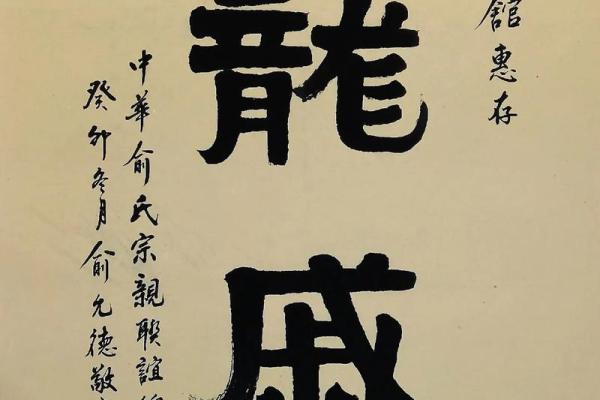 館惠存
龍
戚
中華俞氏宗親聯誼
癸卯冬月俞允德敬